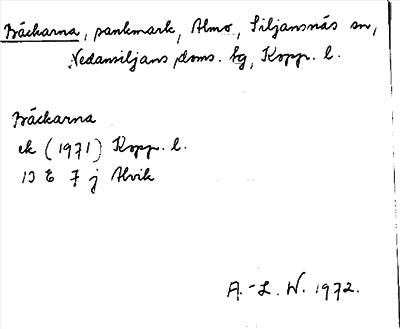 Bäckarna, sankmark, Almo, Siljansnäs sn,
Nedansiljans doms. hg, Kopp. l.
Bäckarna
ek (1971) Kopp. l.
13 E 7 j Alvik
A.-L. W. 1972.